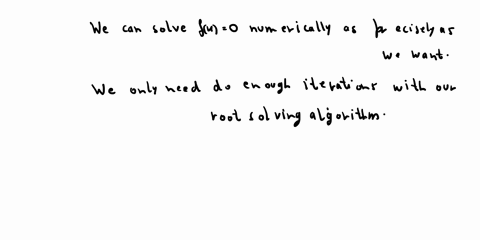 We can solve f(x)=0 numerically as precisely as
we want.
We only need do enough iterations with our
root solving algorithm.